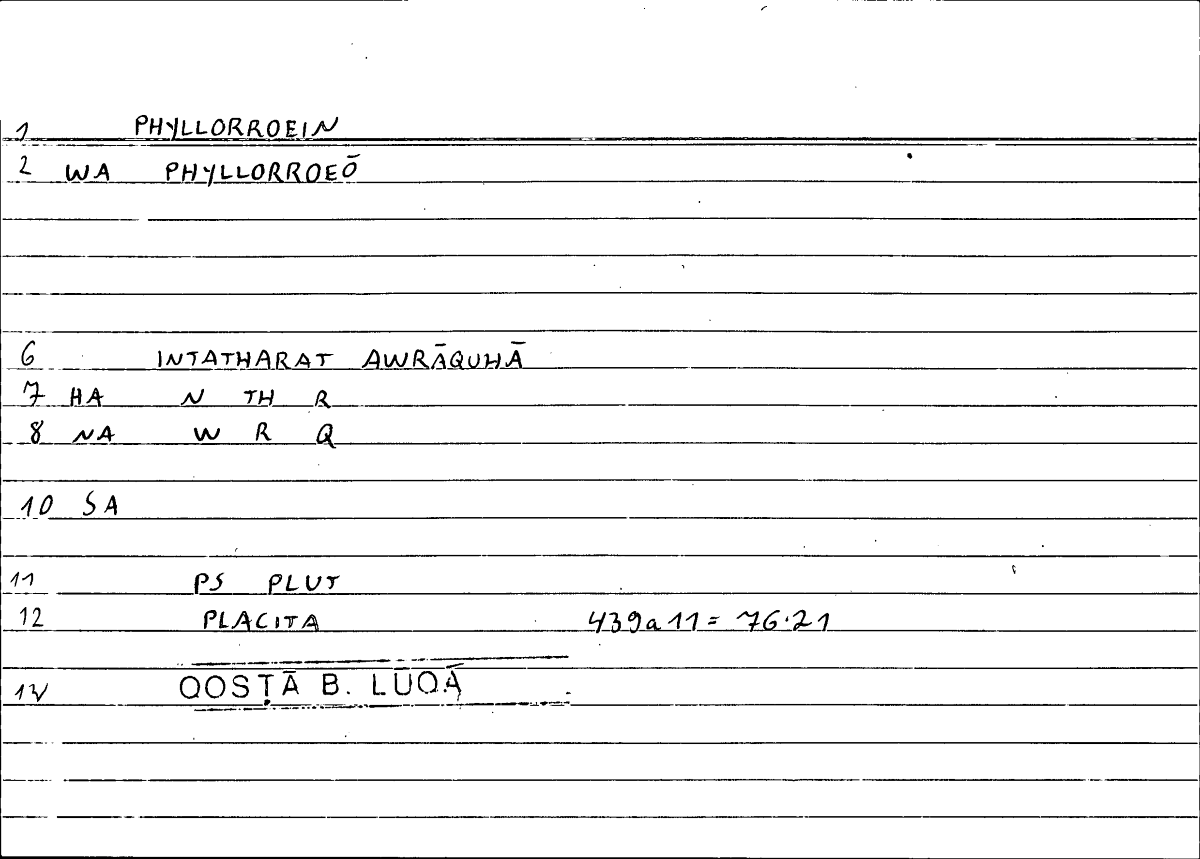 1 PHYLLORROEIN
2 WA PHYLLORROEŌ
6 INTATHARAT AWRĀQUHĀ
7 HA N TH R
8 NA W R Q
10 SA
11 PS PLUT
12 PLACITA 439a11 = 76.21
QOSṬĀ B. LUQĀ